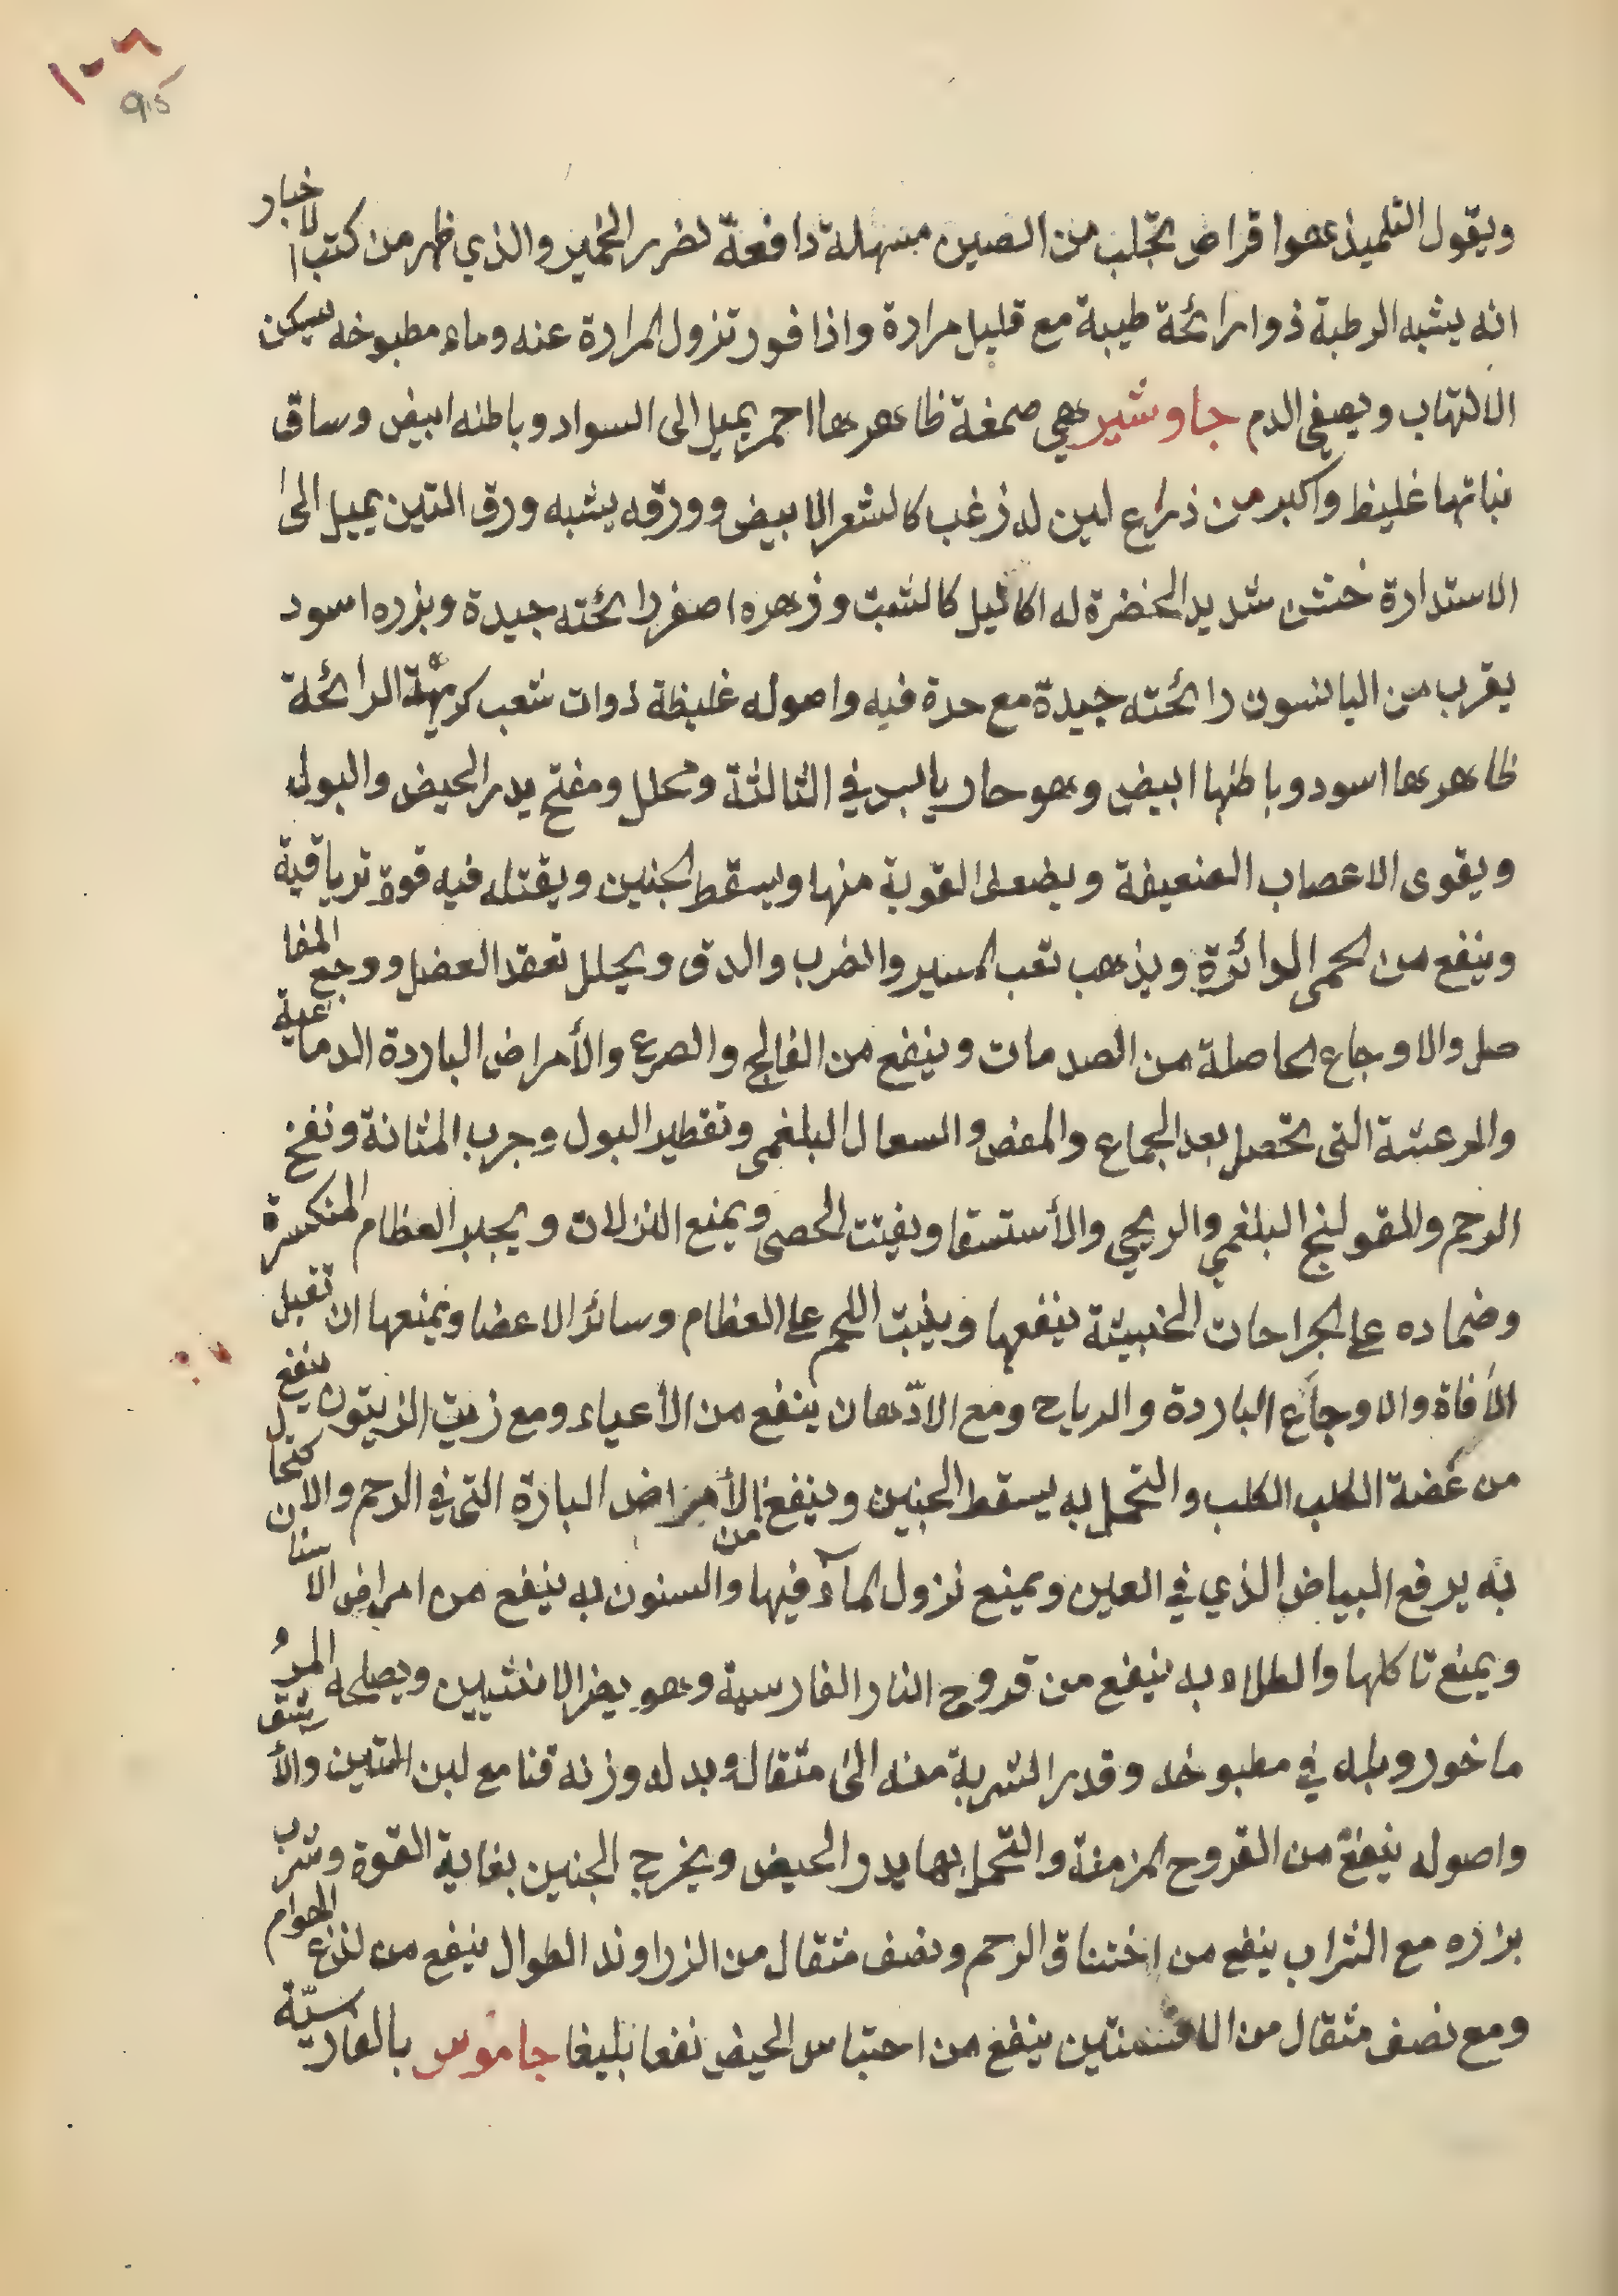 ١٠٨
95
ويقول التلميذ هو اقراص تجلب من الصين مسهلة دافعة لضرر الخمير والذي ظهر من كتب الاخبار
انه يشبه الرطبة ذو ارائحة طيبة مع قليل مرارة واذا فور تزول المرارة عنه وماء مطبوخه سيكن
الالتهاب ويصفى الدم جاوشير هي صمغة ظاهرها احمر يميل الى السواد وباطنه ابيض وساق
نباتها غليظ واكبر من ذراع لين له زغب كالشعر الابيض وورقه يشبه ورق التين يميل الى
الاستدارة خشن شديد الخضرة له اكاليل كالشبت وزهره اصفر رائحته جيدة وبزره اسود
يقرب من اليانسون رائحته جيدة مع حدة فيه واصوله غليظة ذوات شعب كريهة الرائحة
ظاهرها اسود وباطنها ابيض وهو حار يابس في الثالثة ومحلل ومفتح يدر الحيض والبول
ويقوى الاعصاب الضعيفة ويضعف القوية منها ويسقط الجنين ويقتله فيه قوة ترياقية
وينفع من الحمى الدائرة ويذهب تعب المسير والضرب والدق ويحلل تعقد العضل ووجع المفا
صل والاوجاع الحاصلة من الصدمات وينفع من الفالج والصرع والأمراض الباردة الدماغية
والرعشة التى تحصل بعد الجماع والمغص والسعال البلغمى وتقطير البول وجرب المثانة ونفخ
الرحم والقولنج البلغمي والريحي والأستسقا ويفتت الحصى ويمنع النزلات ويجبر العظام المنكسرة
وضماده على الجراحات الخبيثة ينفعها وينبت اللحم على العظام وسائر الاعضا ويمنعها ان تقبل
الأفاة والاوجاع الباردة والرياح ومع الادّهان ينفع من الأعياء ومع زيت الزيتون ينفع
من عضة الكلب الكلب والتحمل به يسقط الجنين وينفع من الأمراض البارة التى في الرحم والاكتحال
به يرفع البياض الذي في العين ويمنع نزول المآء فيها والسنون به ينفع من امراض الاسنان
ويمنع تاكلها والطلاء به ينفع من قروح النار الفارسية وهو يضر الانثيين ويصلحه المرُ
ماخور وبله في مطبوخه وقدر الشربة منه الى مثقال وبدله وزنه قنا مع لبن التين والأشق
واصوله ينفع من القروح المزمنة والتحمل بها يدر الحيض ويخرج الجنين بغاية القوة وشرب
بزره مع الشراب ينفع من اختناق الرحم ونصف مثقال من الزراوند الطوال ينفع من لذع الهوام
ومع نصف مثقال من الافسنتين ينفع من احتباس الحيض نفعا بليغا جاموس بالفارسيّة